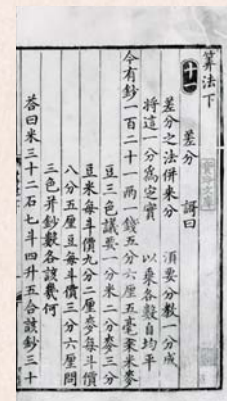 算法下
十一
差分 訶曰
差分之法併來分 須要分數一分成
將這一分為定實 以乘各數自均平
今有鈔一百二十一兩一錢五分六厘五毫糴米麥
豆三色議要一分米二分麥三分
豆米每斗價九分二厘麥每斗價
八分五厘豆每斗價三分六厘問
三色并鈔數各該幾何
荅曰米三十二石七斗四升五合該鈔三十